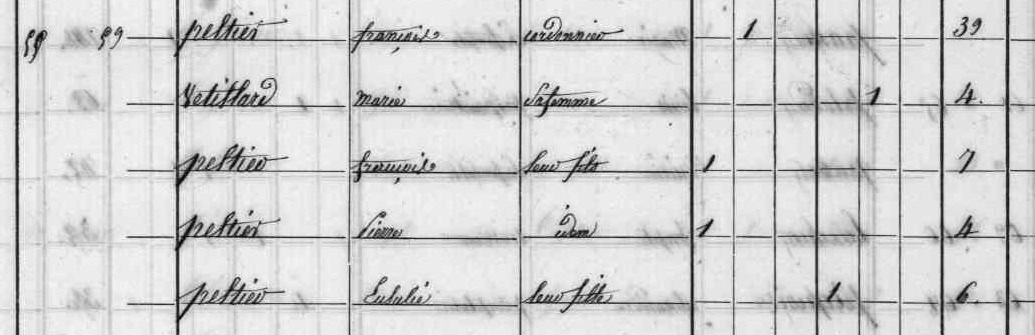 59 59 peltier françois cordonnier 1 39
Vetillard marie Sa femme 1 4.
peltier françois leur fils 1 7
peltier Pierre idem 1 4
peltier Eulalie leur fille 1 6.